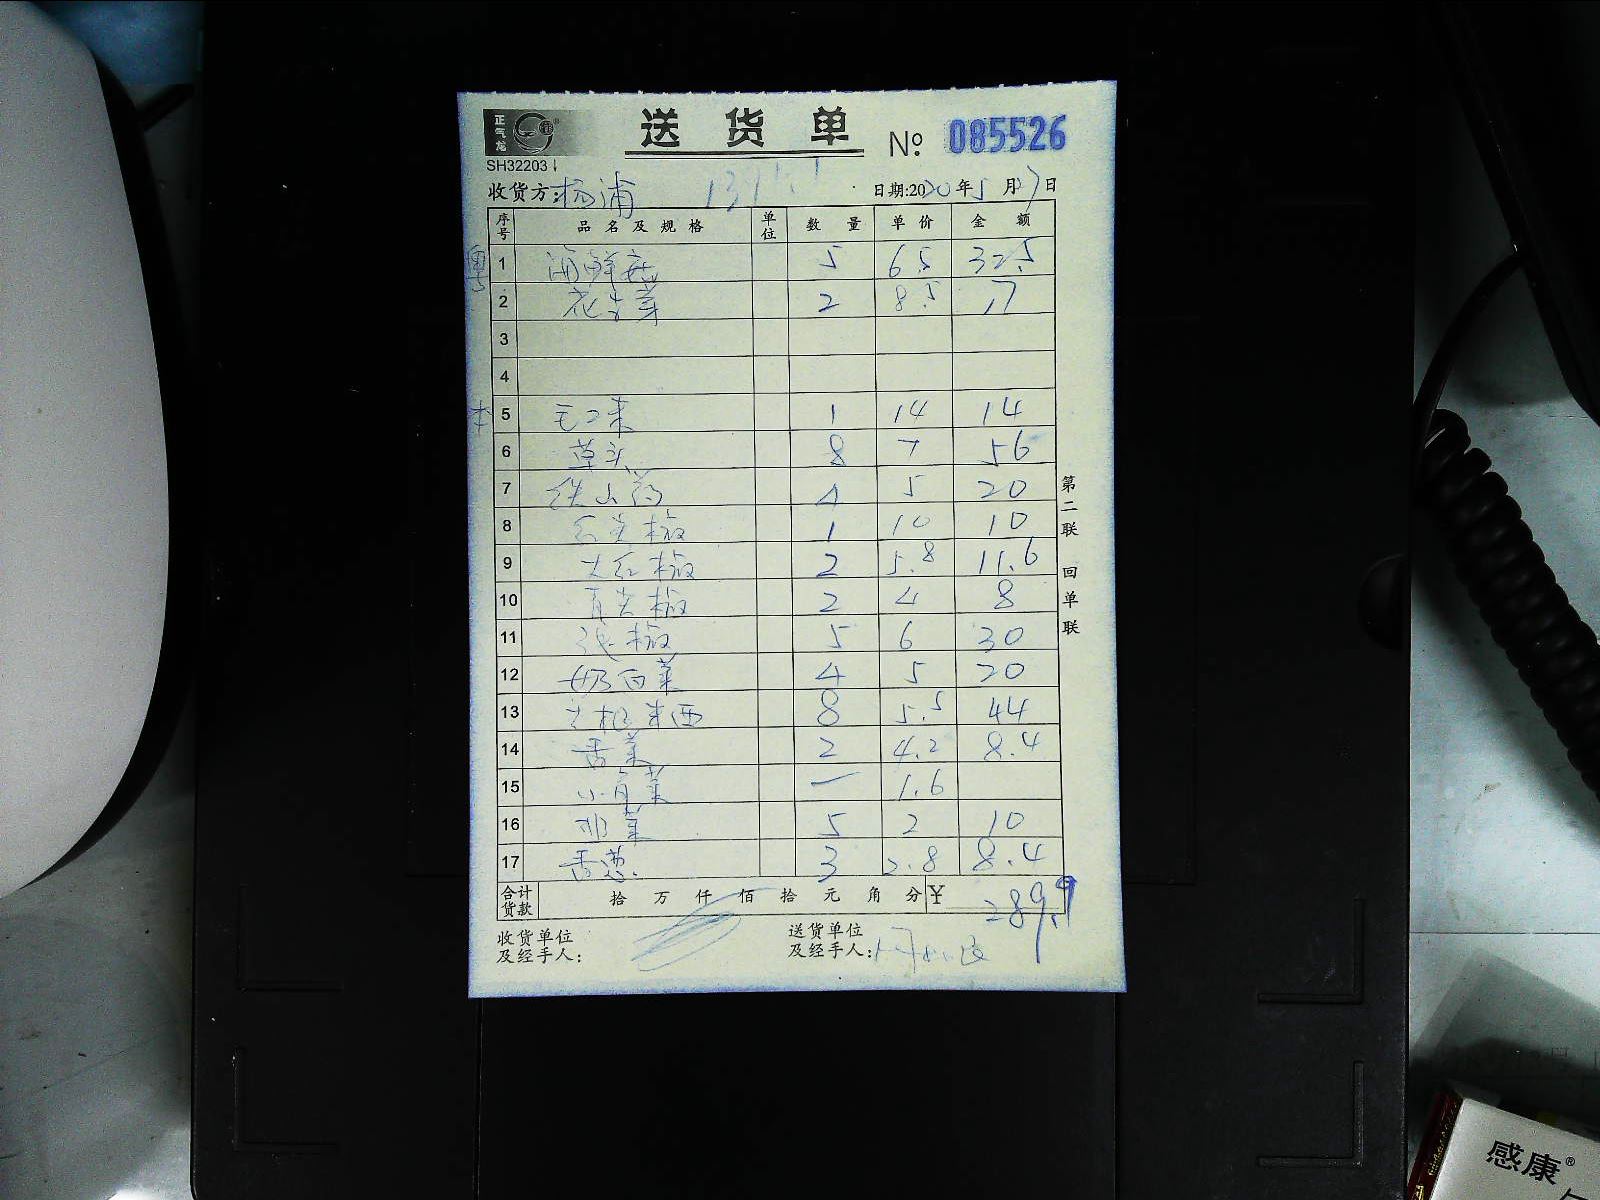 正气龙
送货单 №: 085526
SH32203
收货方: 杨浦 日期:2020年5月27日
序号 品名及规格 单位 数量 单价 金额
1 海鲜菇 5 6.5 32.5
2 花生芽 2 8.5 17
3
4
本 5 毛豆 1 14 14
6 草头 8 7 56
7 铁山药 4 5 20
8 红尖椒 1 10 10
9 大红椒 2 5.8 11.6
10 青尖椒 2 4 8
11 线椒 5 6 30
12 奶白菜 4 5 20
13 8 5.5 44
14 香菜 2 4.2 8.4
15 小青菜 一 1.6
16 5 2 10
17 香葱 3 2.8 8.4
合计货款 拾 万 仟 佰 拾 元 角 分 ¥ 289.9
收货单位及经手人:
送货单位及经手人:
第二联 回单联
感康®